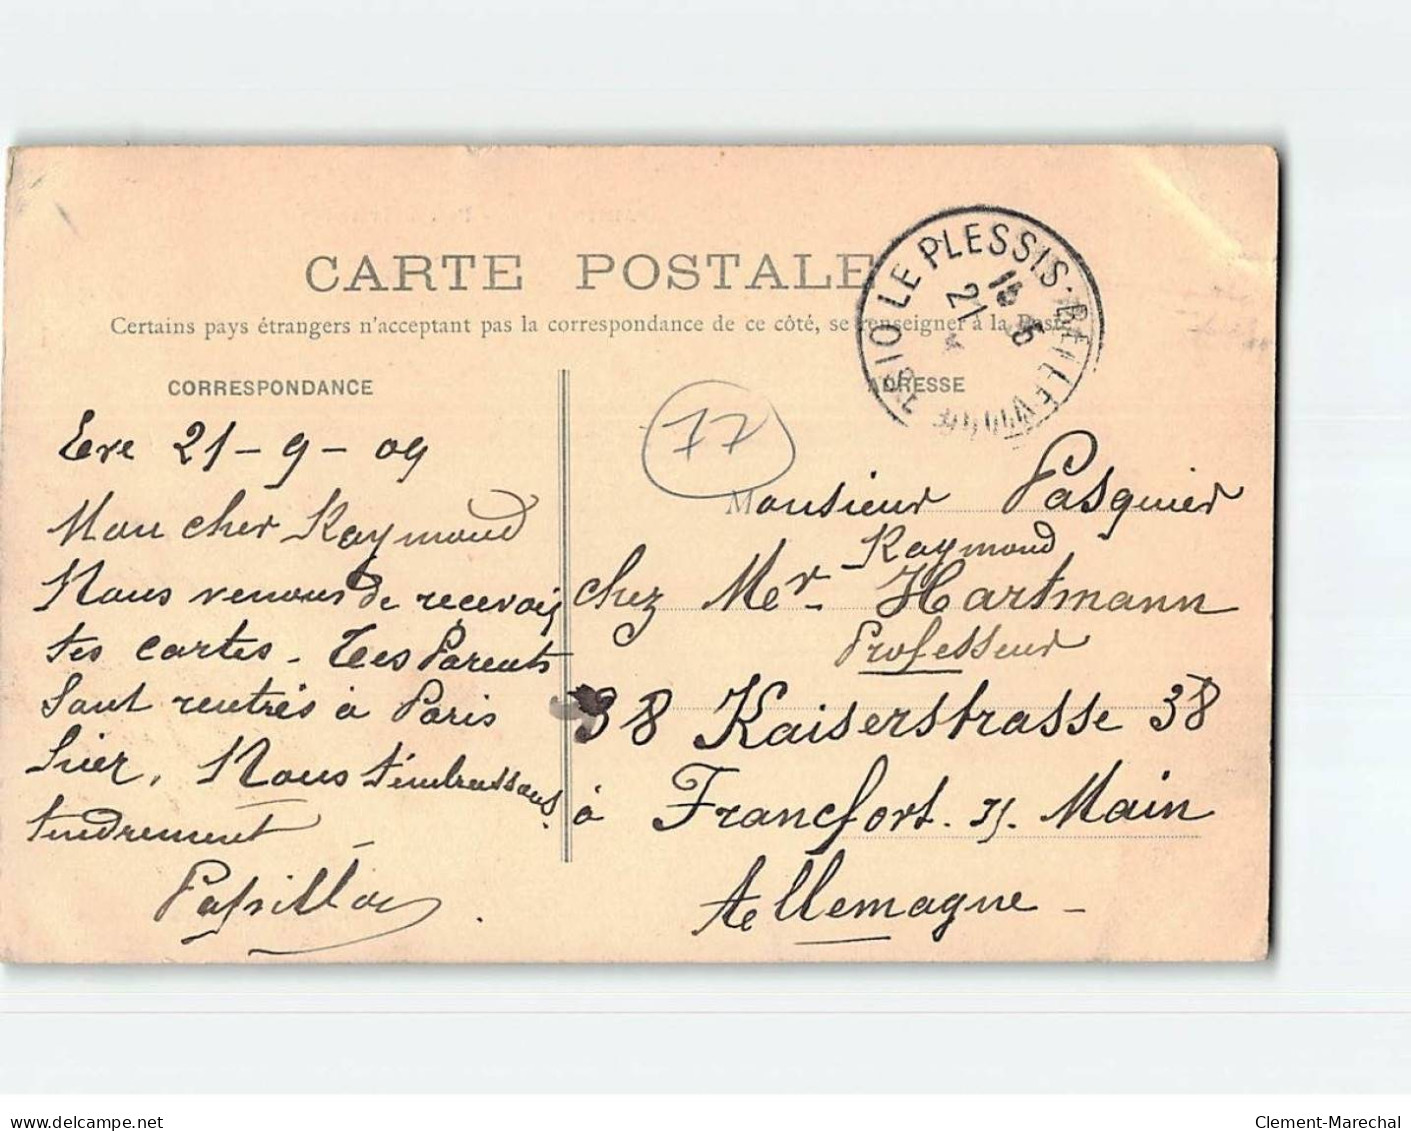 CARTE POSTALE
Certains pays étrangers n'acceptant pas la correspondance de ce côté, se renseigner à la Poste
CORRESPONDANCE
Eve 21 - 9 - 09
Mon cher Raymond
Nous venons de recevoir
tes cartes - Tes Parents
sont rentrés à Paris
hier. Nous t'embrassons
tendrement
Papillon
LE PLESSIS-BELLEVILLE
15 5
21
OISE
77
ADRESSE
Monsieur Pasquier
Raymond
chez Mer. Hartmann
Professeur
38 Kaiserstrasse 38
à Francfort. s/. Main
Allemagne -
delcampe.net
Clement-Marechal